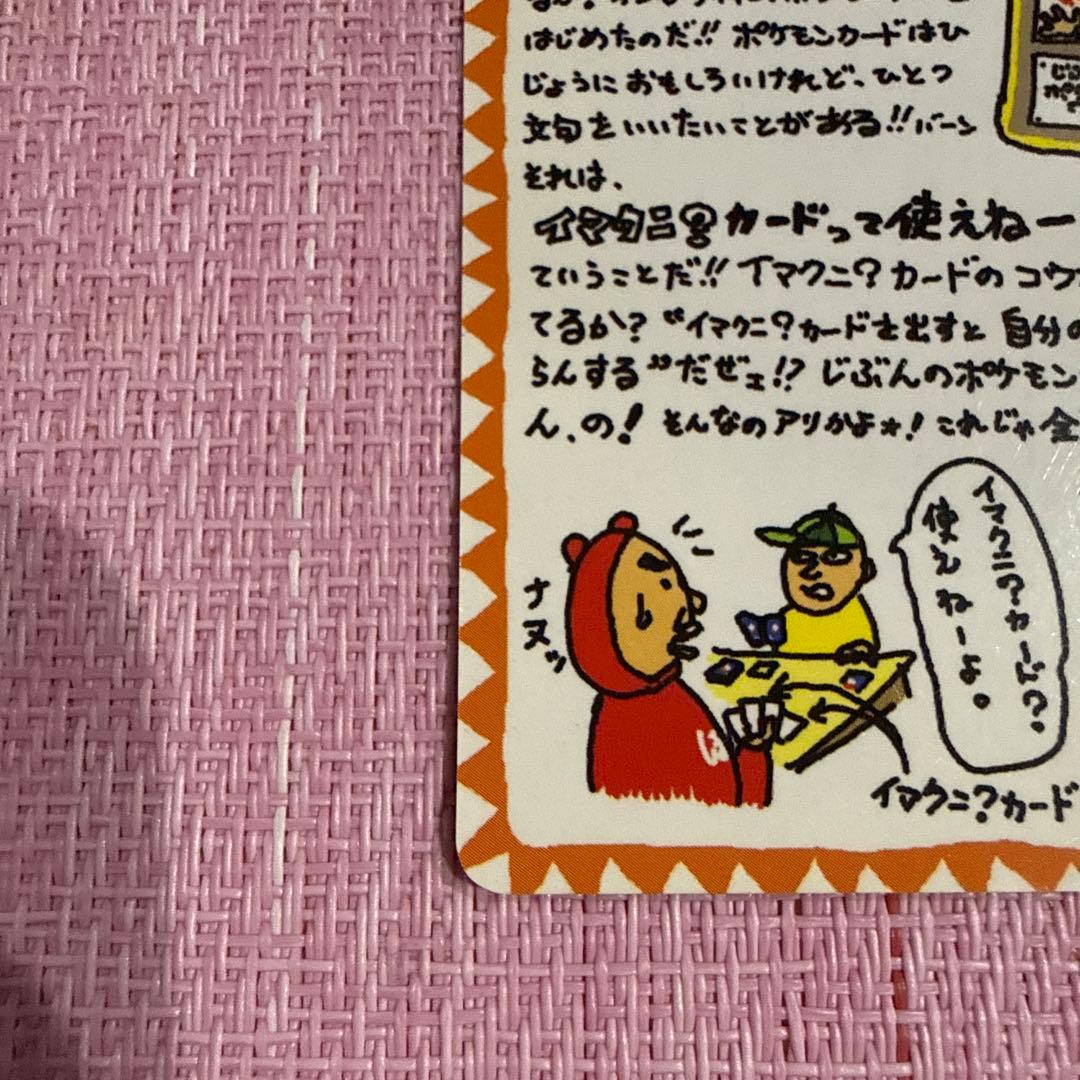 はじめたのだ!! ポケモンカードはひ
じょうにおもしろいけれど、ひとつ
文句をいいたいことがある!! バーン
それは、
イマクニ？カードって使えねー
ていうことだ!! イマクニ？カードのコウ
てるか？“イマクニ？カードを出すと 自分の
らんする”だぜェ!? じぶんのポケモン
ん、の! そんなのアリかよォ! これじゃ全
ナヌッ
イマクニ？カード？
使えねーよ。
イマクニ？カード